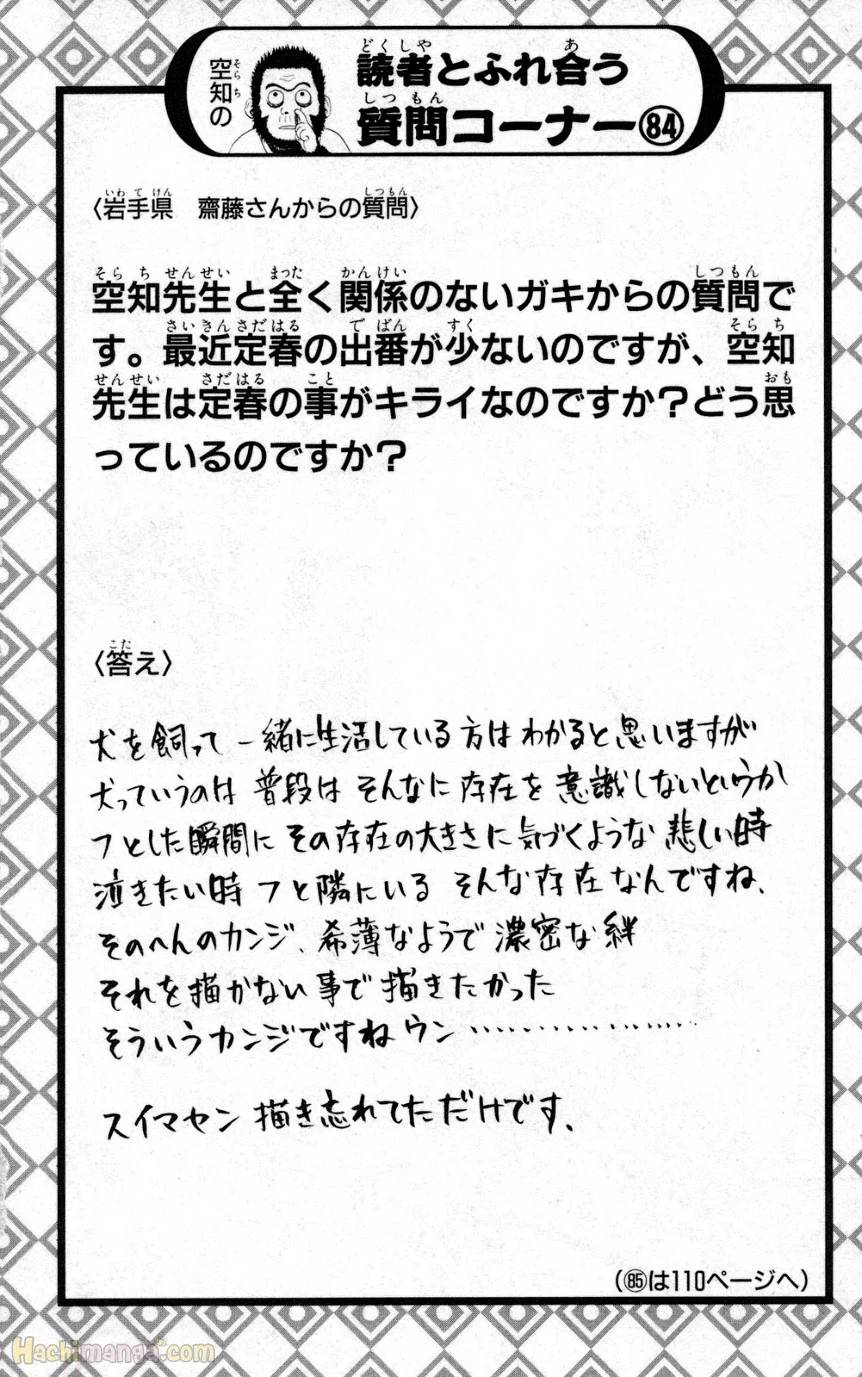 空知の
読者とふれ合う
質問コーナー84
〈岩手県 齋藤さんからの質問〉
空知先生と全く関係のないガキからの質問で
す。最近定春の出番が少ないのですが、空知
先生は定春の事がキライなのですか?どう思
っているのですか?
〈答え〉
犬を飼って一緒に生活している方はわかると思いますが
犬っていうのは普段はそんなに存在を意識しないというか
フとした瞬間にその存在の大きさに気づくような悲しい時
泣きたい時フと隣にいるそんな存在なんですね、
そのへんのカンジ、希薄なようで濃密な絆
それを描かない事で描きたかった
そういうカンジですねウン………………
スイマセン描き忘れてただけです、
(85は110ページへ)
Hachimanga.com